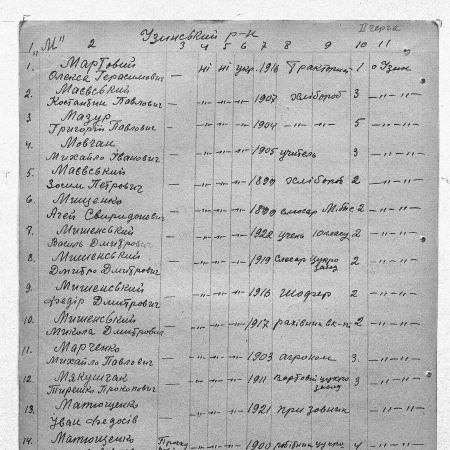 Узинський р-н
II черга
1 "М" 2 3 4 5 6 7 8 9 10 11
1. Мартовий
Олекса Герасимович — ні ні укр. 1916 Тракторист 1 с Узин
2. Маєвський
Костантин Павлович — -"- -"- -"- 1907 хлібороб 3 -"- -"-
3. Мазур
Григорій Павлович — -"- -"- -"- 1904 -"- -"- 5 -"- -"-
4. Мовчан
Михайло Іванович — -"- -"- -"- 1905 учитель 3 -"- -"-
5. Маєвський
Зосим Петрович — -"- -"- -"- 1899 хлібороб 2 -"- -"-
6. Мищенко
Агей Свиридонович — -"- -"- -"- 1899 слюсар 2 -"- -"-
7. Мишенський
Василь Дмитрович — -"- -"- -"- 1922 учень 10 класу 2 -"- -"-
8. Мишенський
Дмитро Дмитрович — -"- -"- -"- 1919 Слюсар цукро завод 2 -"- -"-
9. Мишенський
Федір Дмитрович — -"- -"- -"- 1916 Шофер 2 -"- -"-
10. Мишенський
Микола Дмитрович — -"- -"- -"- 1917 рахівник 2 -"- -"-
11. Марченко
Михайло Павлович — -"- -"- -"- 1903 агроном 3 -"- -"-
12. Мякушган
Тирешко Прокопович — -"- -"- -"- 1911 Вартовий цукро завод 3 -"- -"-
13. Матющенко
Уван Федосів — -"- -"- -"- 1921 призовник -"- -"-
14. Матющенко
-"- -"- -"- 1900 робітник цукро 4 -"- -"-